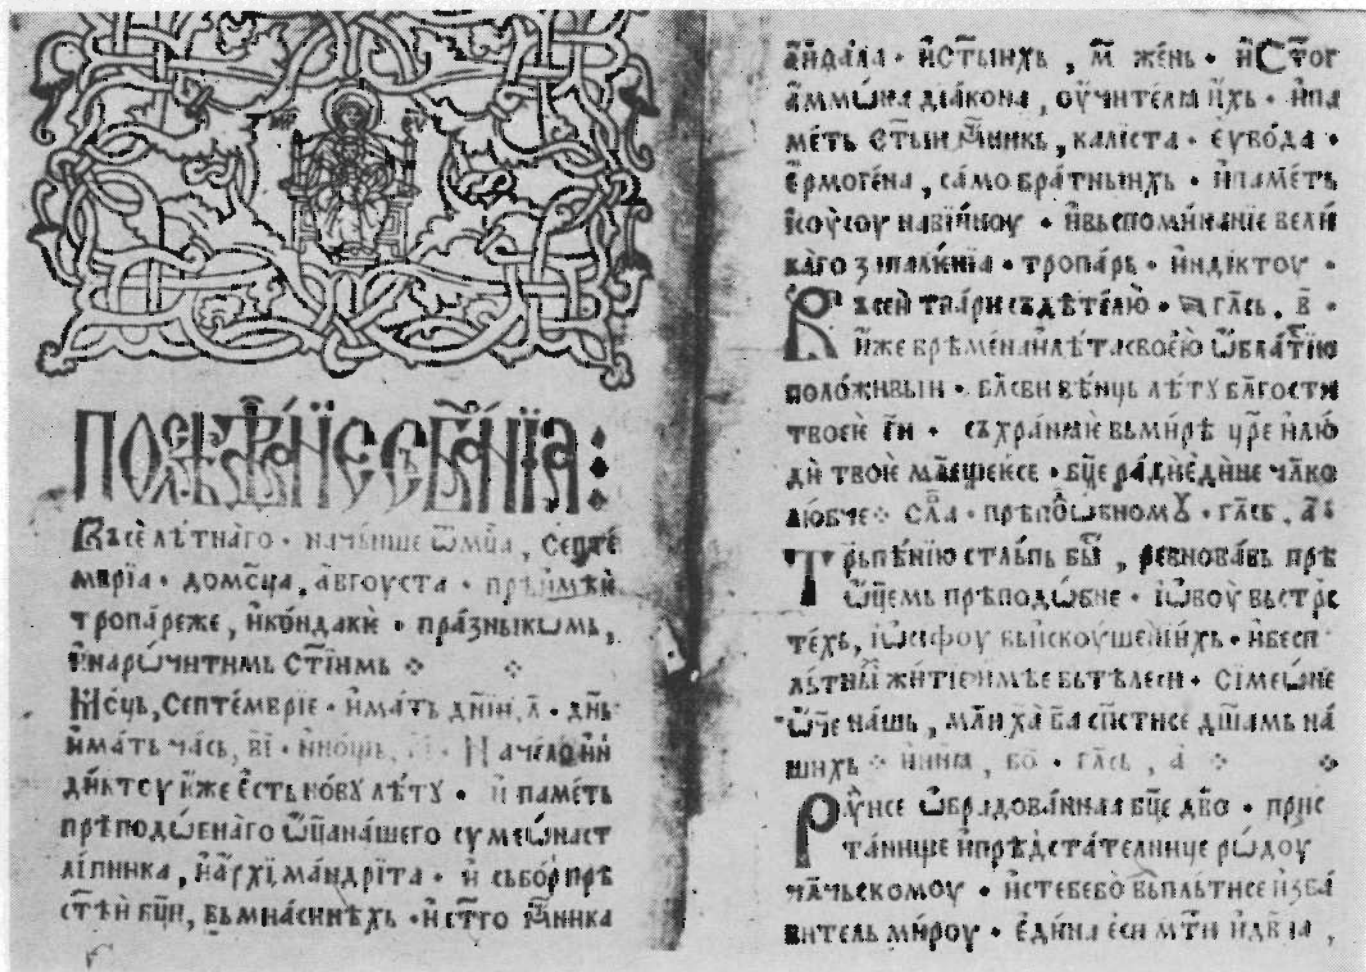 ПОСЛѢДОВАНЇЕ СЪБРАНЇА:
Въсѐ лѣ́тнаго · наче́нше ѿ мц҃а, септе́
мврїа · до мс҃ца, а҆́вгоуста · прѣи҆мѣ́и
тропа́реже, и҆ко́ндакѝе · пра́зныкѡмь,
и҆наро́читимь ст҃іимь
Мс҃ць, септе́мврїе · и҆ма́ть дн҃їи, л҃ · дн҃ь
и҆ма́ть ча́сь, в҃і · и҆нощь, · Наче́ло и҆н
ди́ктоу и҆́же е҆́сть но́вꙋ лѣ́тꙋ · и҆ па́меть
прѣподѡ́бнаго ѿц҃а на́шего сумеѡ́на ст
лі́пника, и҆ а҆рхїма́ндрїта · и҆ сьбо́р прѣ
ст҃ѣ́и бц҃и, вьмиа́синѣхь · и҆ ст҃го мч҃ника
а҆и҆ѳа́ла · и҆ ст҃ы́ихь, м҃ же́нь · и҆ ст҃ог
а҆ммѡ́на дїа́кона, оу҆чи́телꙗ и҆́хь · и҆ па
ме́ть ст҃ы́и мч҃никь, калі́ста · е҆уво́да ·
е҆рмоге́на, са́мобра́тныихь · и҆ паме́ть
і҆соу́соу наві́иноу · и҆ вьспомина́нїе вели́
ка́го з палкні́а · тропа́рь · и҆нді́ктоу ·
Въсе́и тва́ри съдѣ́телю · гла҃сь. в҃ ·
и҆́же врѣ́мена и҆ лѣ́та свое́ю ѡ҆бла́стїю
положи́выи · бл҃гсви вѣ́нць лѣ́тꙋ бл҃гости
твоеѐ гї҃и · съхра́нꙗѥ вьми́рѣ цр҃е и҆ лю́
дѝ твоѐ мл҃ещеѥсе · бц҃е ра́ди е҆ди́не чл҃ко
лю́бче · сла҃ · прѣподѡ́бномꙋ · гла҃сь, а҃
Трьпѣ́нїю стль́пь бы҃, ревнова́вь прѣ
ѿц҃емь прѣподѡ́бне · і҆ѡ́воу вьстр҃с
те́хь, і҆ѡ́сифоу вьи҆скоуше́нихь · и҆ бесп
ль́тны́и жи́тїе и҆мѣ́е вьтѣ́леси · Сїмеѡ́не
ѿ҃че на́шь, мл҃и ха҃ ба҃ сп҃стисе дш҃амь на́
шихь · и҆ни҃ꙗ, бо҃ · гла҃сь, а҃
Ра́уисе ѡ҆брадова́ннаа бц҃е дв҃о · прис
та́нище и҆ прѣ́дста́телнице рѡ́доу
чл҃чьскомоу · и҆стебе́бо вьпль́тисе и҆зба́
витель ми́роу · е҆ди́на е҆сѝ мт҃и и҆ дв҃їа,